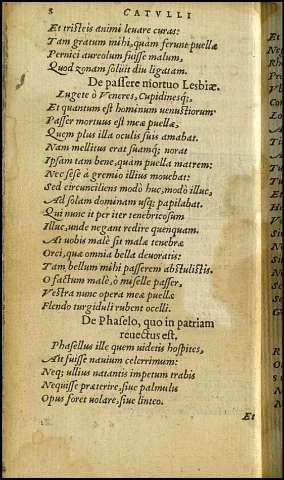 8 CATVLLI
Et tristeis animi leuare curas:
Tam gratum mihi, quam ferunt puellæ
Pernici aureolum fuisse malum,
Quod zonam soluit diu ligatam.
De passere mortuo Lesbiæ.
Lugete ô Veneres, Cupidinesq́;
Et quantum est hominum uenustiorum
Passer mortuus est meæ puellæ,
Quem plus illa oculis suis amabat.
Nam mellitus erat suamq́; norat
Ipsam tam bene, quàm puella matrem:
Nec sese à gremio illius mouebat:
Sed circunsiliens modò huc, modò illuc,
Ad solam dominam usq; papilabat.
Qui nunc it per iter tenebricosum
Illuc, unde negant redire quenquam.
At uobis malè sit malæ tenebræ
Orci, quæ omnia bella deuoratis:
Tam bellum mihi passerem abstulistis.
O factum malè, ô miselle passer,
Vestra nunc opera meæ puellæ
Flendo turgiduli rubent ocelli.
De Phaselo, quo in patriam
reuectus est.
Phasellus ille quem uidetis hospites,
Ait fuisse nauium celerrimum:
Neq; ullius natantis impetum trabis
Nequisse præterire, siue palmulis
Opus foret uolare, siue linteo.
Et